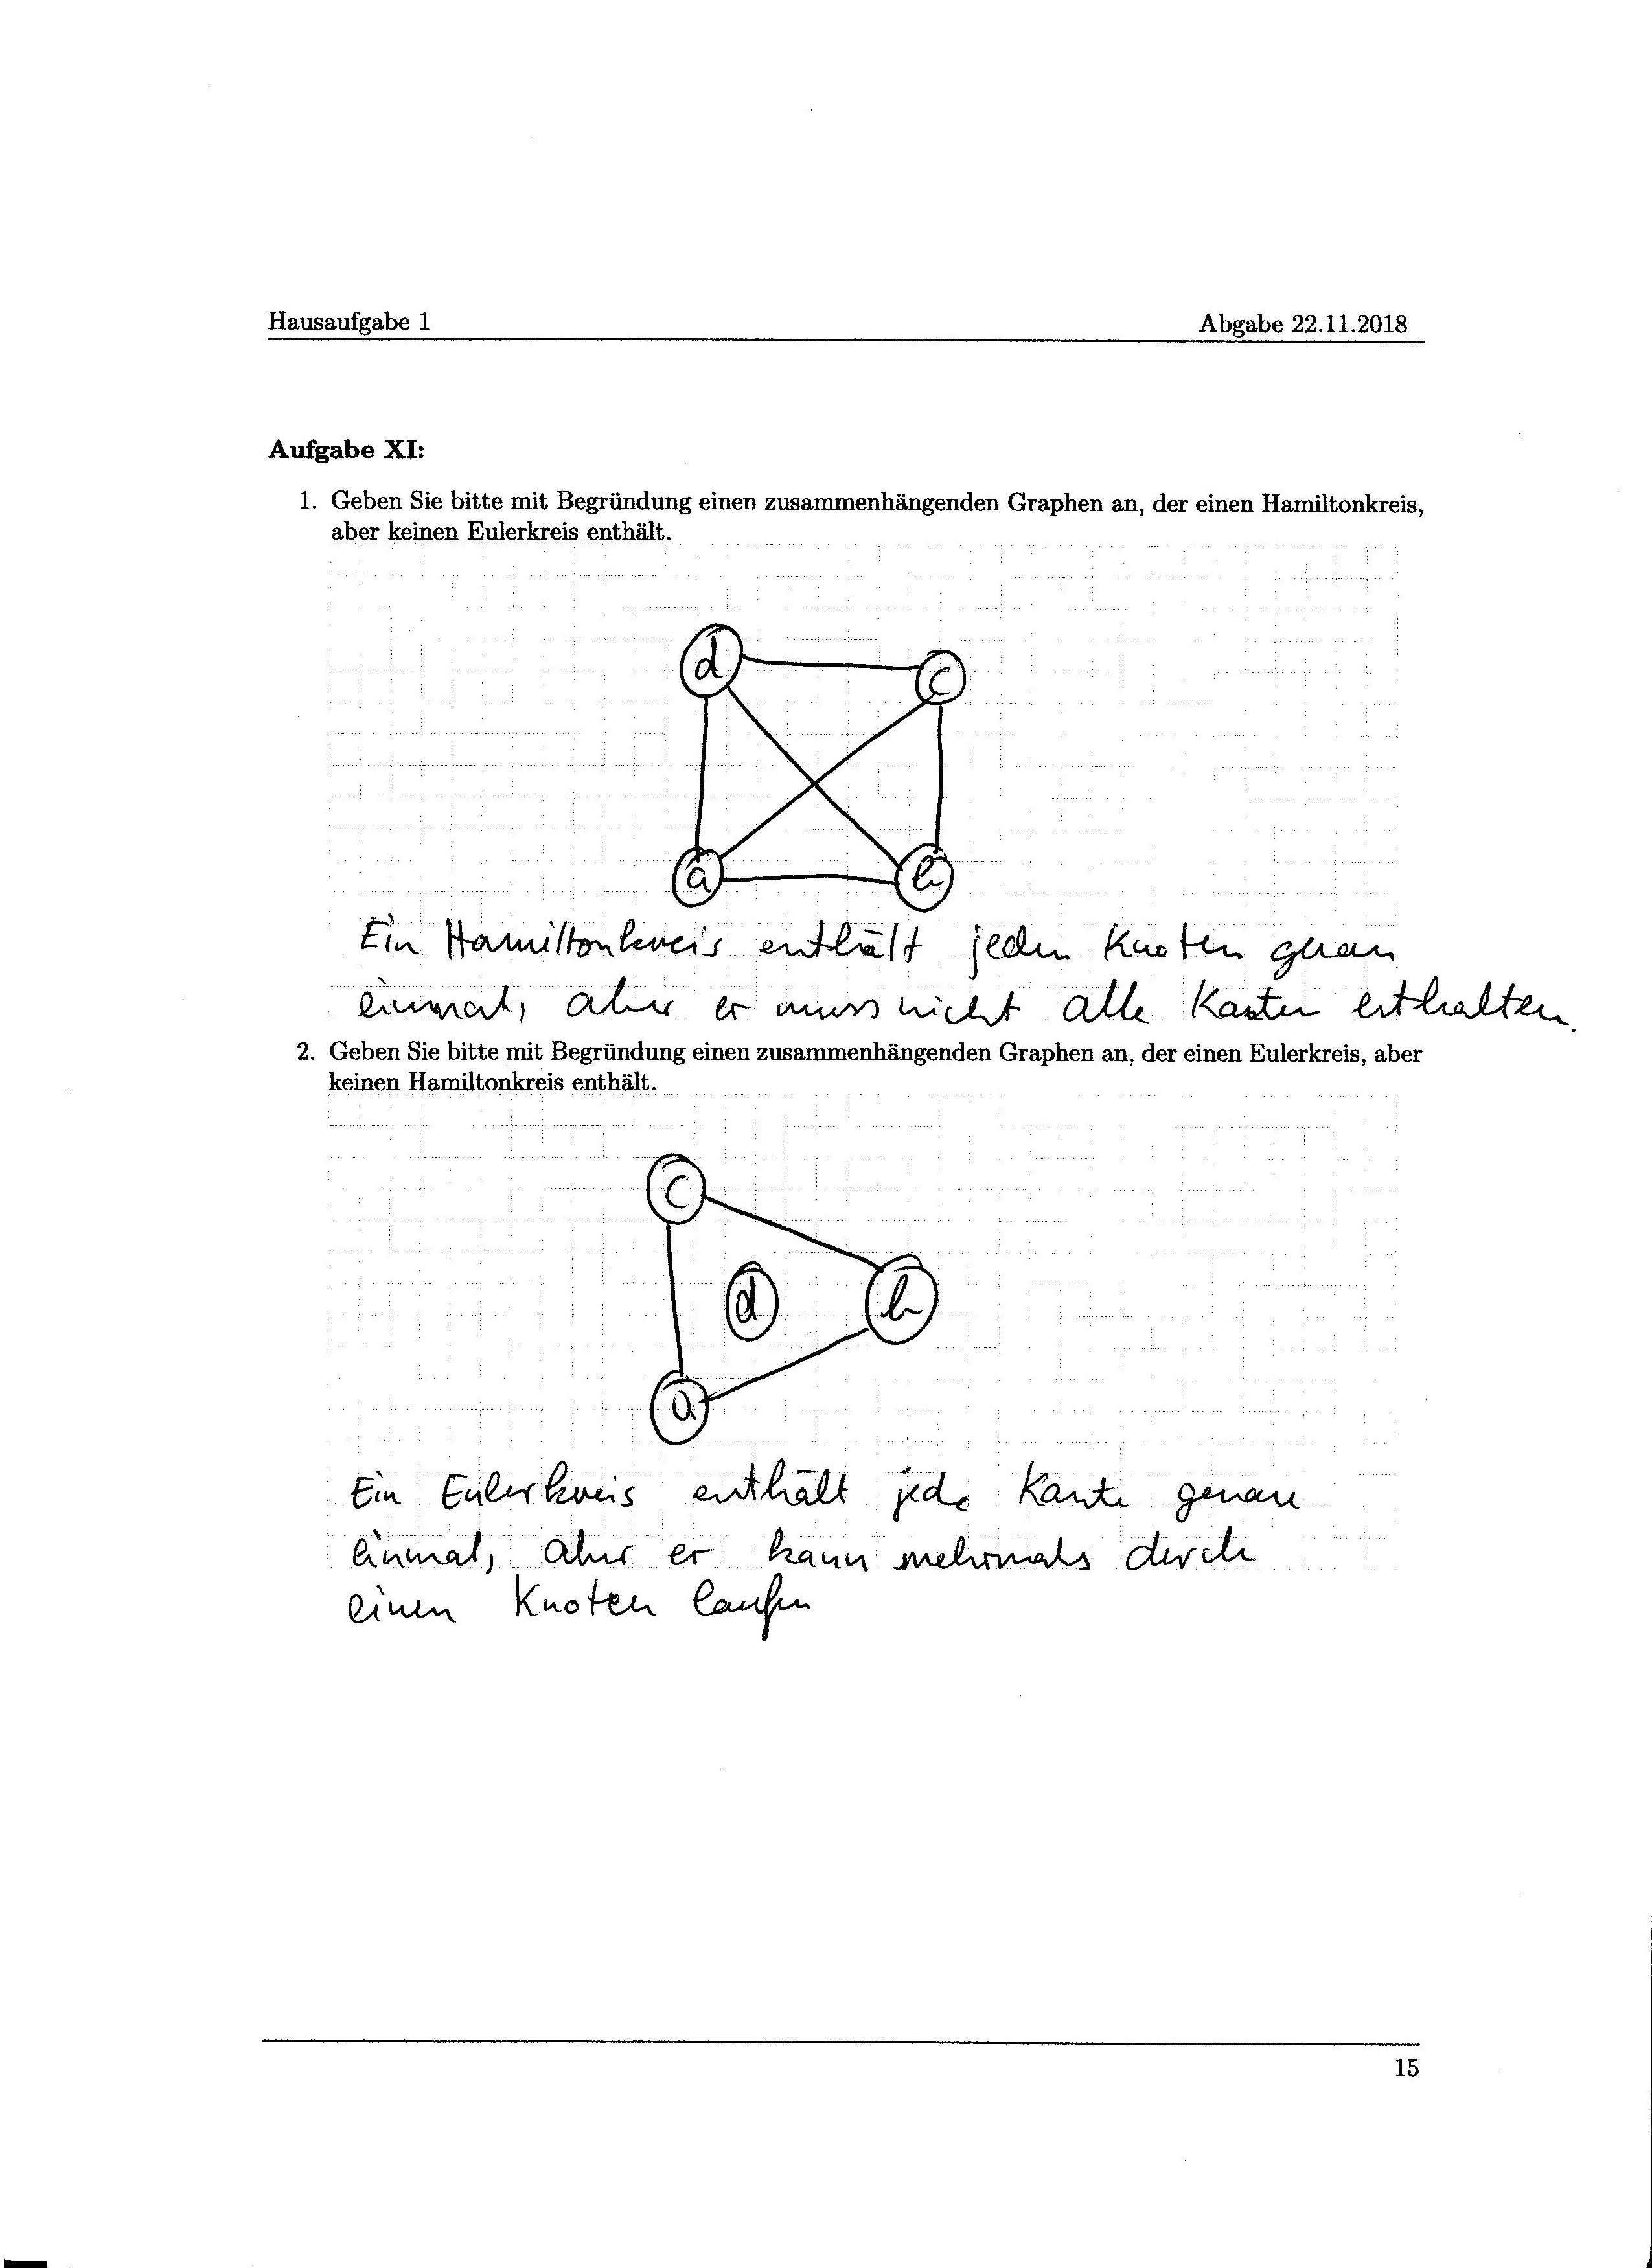 Hausaufgabe 1 Abgabe 22.11.2018
Aufgabe XI:
1. Geben Sie bitte mit Begründung einen zusammenhängenden Graphen an, der einen Hamiltonkreis,
aber keinen Eulerkreis enthält.
d c
a b
Ein Hamiltonkreis enthält jeden Knoten genau
einmal, aber er muss nicht alle Kanten enthalten.
2. Geben Sie bitte mit Begründung einen zusammenhängenden Graphen an, der einen Eulerkreis, aber
keinen Hamiltonkreis enthält.
c
d b
a
Ein Eulerkreis enthält jede Kante genau
einmal, aber er kann mehrmals durch
einen Knoten laufen
15